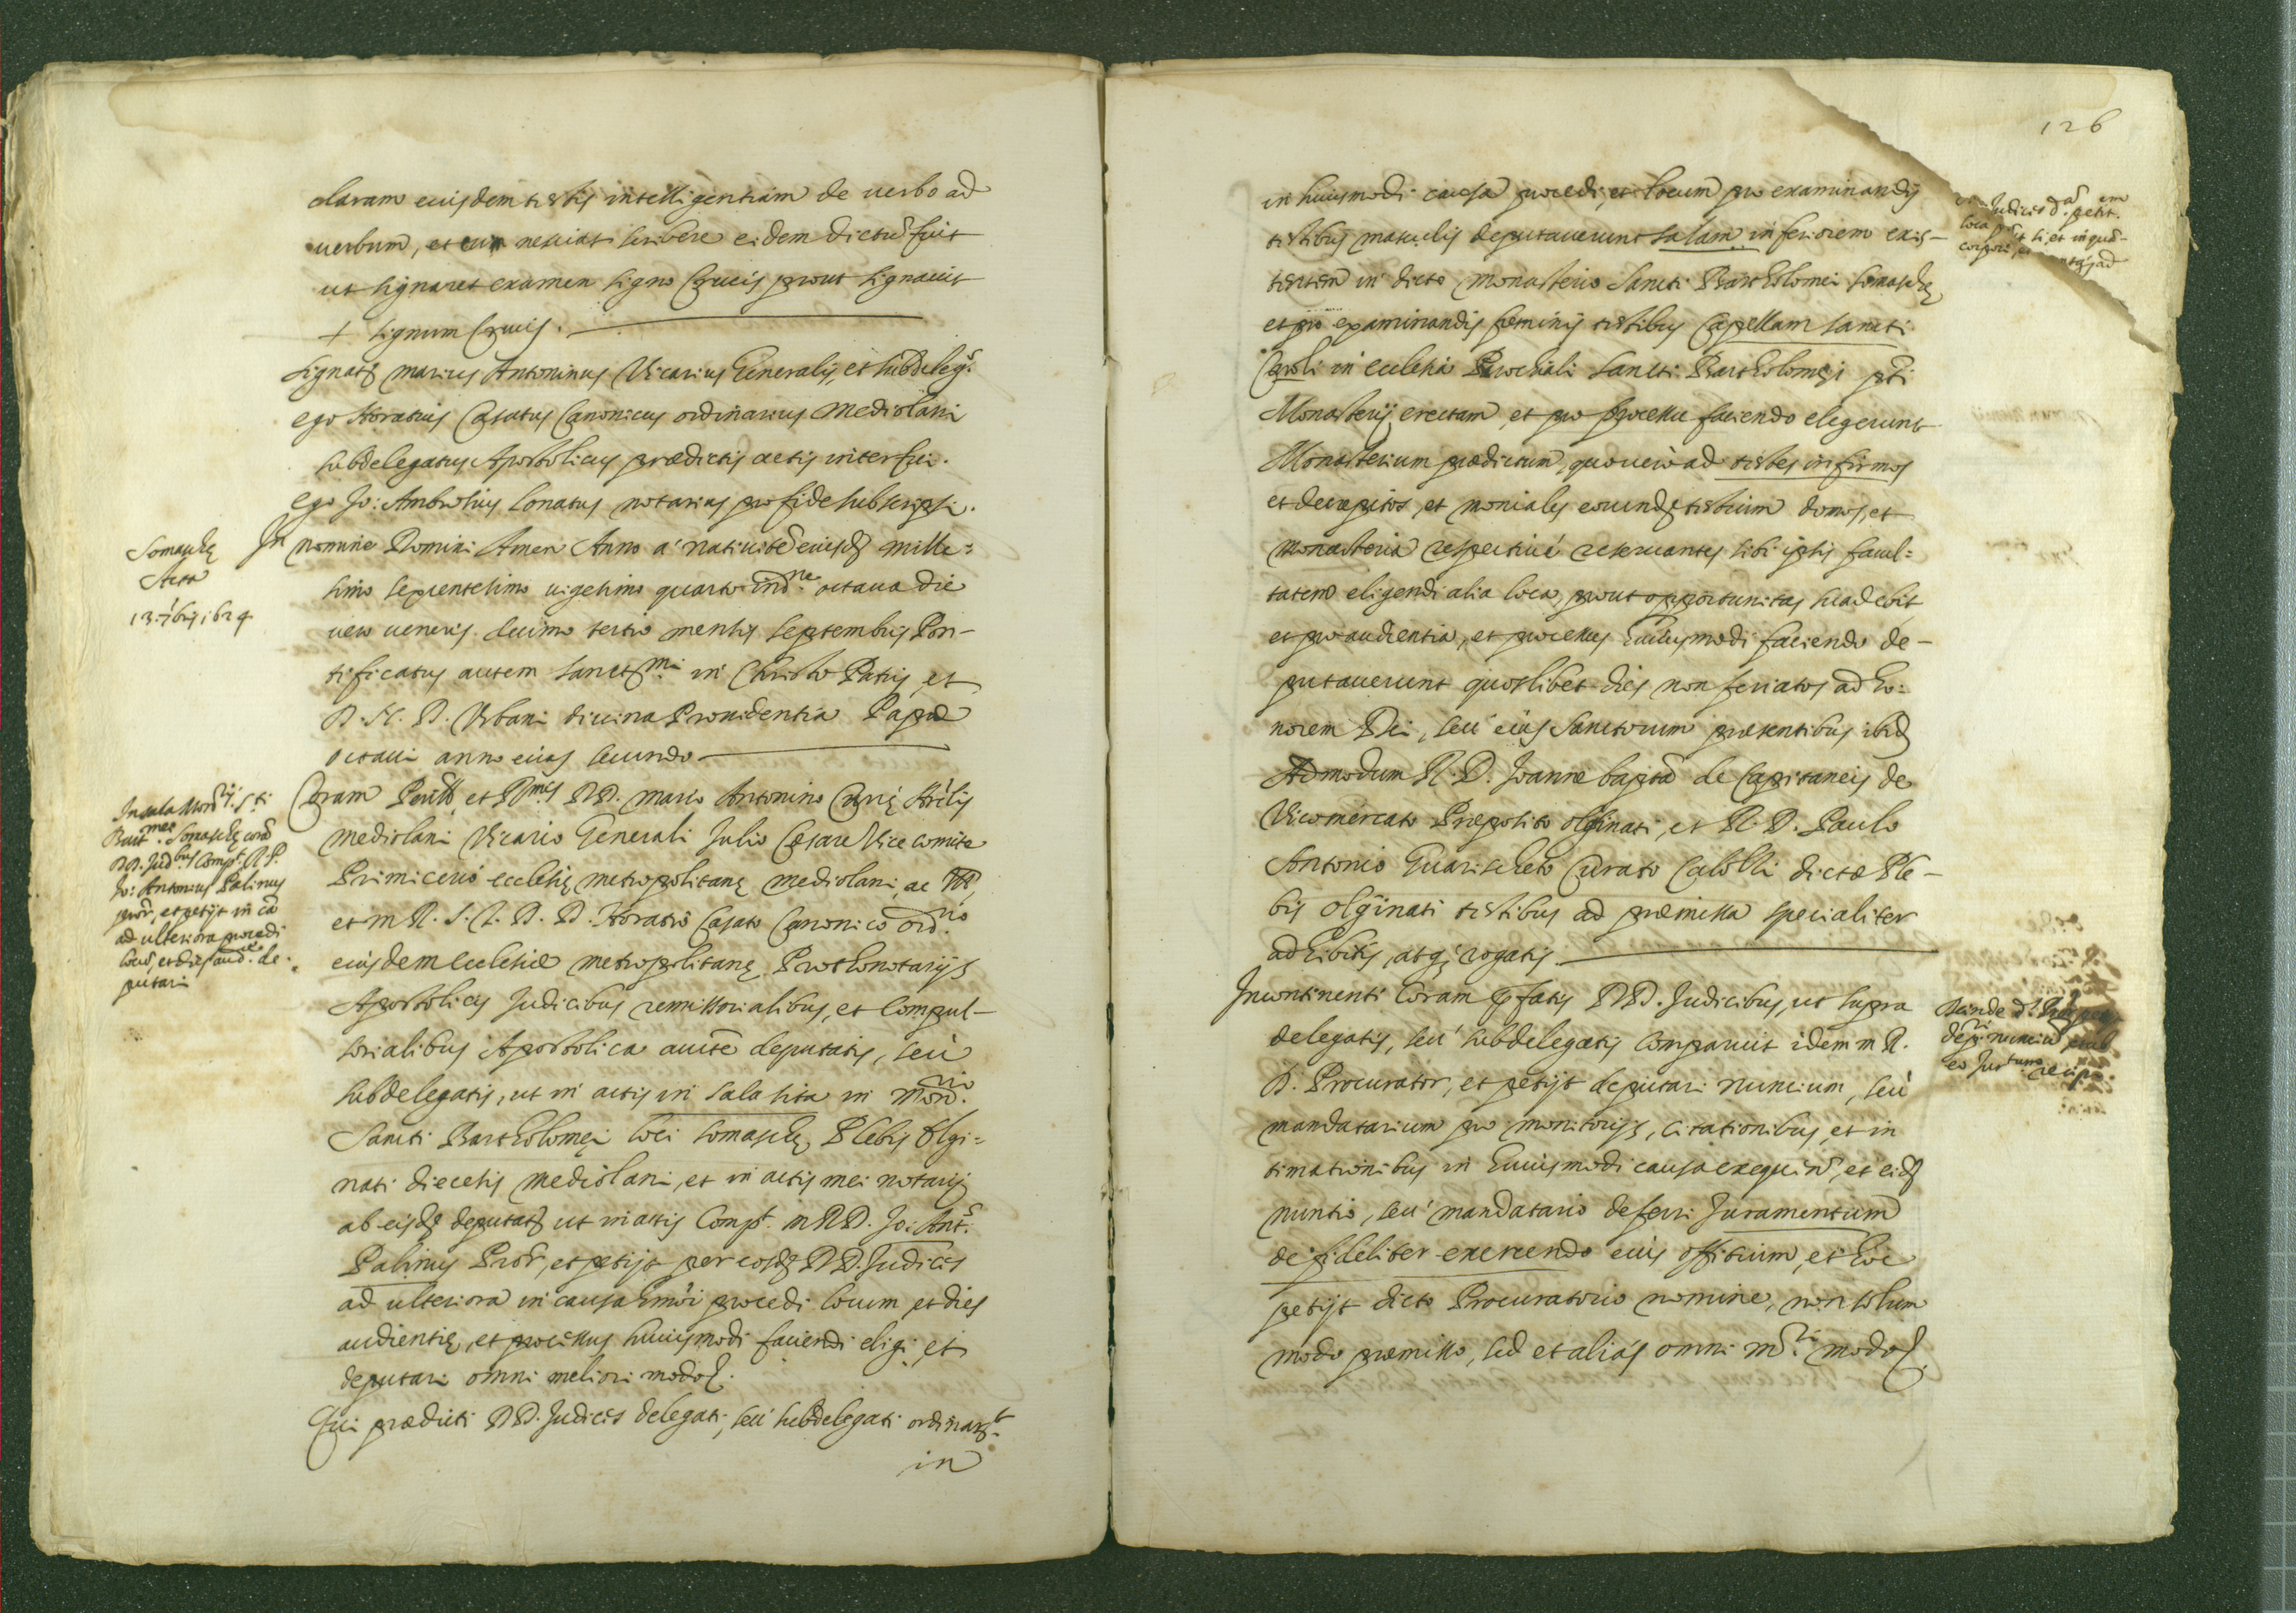 claram eiusdem testis intelligentiam de verbo ad
verbum, et cum nesciat scribere eidem dictũ fuit
ut signaret examen signo Crucis prout signavit
+ signum Crucis.
signatꝫ Marius Antoninus Vicarius Generalis, et subdeleg.s
ego Horatius Casatus Canonicus ordinarius Mediolani
subdelegatus Apostolicus prædictis actis interfui.
ego Jo: Ambrosius Lonatus notarius pro fide subscripsi.
Somaschę
Acta
13. 7bris 1624
In nomine Domini Amen Anno a' nativitẽ eiusdꝫ mille=
simo sexcentesimo vigesimo quarto ind.ne octava die
vero veneris decimo tertio mensis septembris Pon-
tificatus autem sanctꝫmi in Christo Patris, et
D. N. D. Urbani divina Providentia Papæ
octavi anno eius secundo
In sala Mon.rij S.ti
Bart.mei Somaschę corã
DD. Jud.bus Comp.t R. P.
Jo: Antonius Palinus
procr, et petijt in cã
ad ulteriora procedi
locũ, et dies aud.æ de-
putari
Coram Perill. et R.mis DD. Mario Antonino Curię Archilis
Mediolani Vicario Generali Julio Cæsare Vice comite
Primicerio ecclesię metropolitanę Mediolani, ac
et m R. J. C. D. D. Horatio Casato Canonico ord.rio
eiusdem ecclesiæ metropolitanę Prothonotarijs
Apostolicis Judicibus remissorialibus, et Compul-
sorialibus Apostolica aucte deputatis, seù
subdelegatis, ut in actis in sala sita in Mon.rio
Sancti Bartholomęi loci Somaschę Plebis Olgi=
nati diecesis Mediolani, et in actis mei notarij
ab eisdꝫ deputatꝫ ut in actis Comp.t m R D. Jo: Ant.s
Palinus Procr, et petijt per eosdꝫ DD. Judices
ad ulteriora in causa hmõi procedi locum, et dies
audientię, et processus huiusmodi faciendi eligi, et
deputari omni meliori modo.
Qui prædicti DD. Judices delegati, seu subdelegati ordinar.t
in
126
in huiusmodi causa procedi, et locum pro examinandis
testibus masculis deputaverunt salam inferiorem exis-
tentem in dicto Monasterio Sancti Bartholomei Somaschę
et pro examinandis feminis testibus Capellam Sancti
Caroli in ecclesia Parochiali Sancti Bartholomęi pti
Monasterij erectam, et pro processu faciendo elegerunt
Monasterium prædictum, quo verò ad testes infirmos
et decrepitos, et moniales eorundꝫ testium domos, et
Monasteria respectivè reservantes sibi ipsis facul=
tatem eligendi alia loca, prout opportunitas suadebit
et pro audientia, et processus huiusmodi faciendo de-
putaverunt quoslibet dies non feriatos ad ho=
norem Dei, seu' eius Sanctorum præsentibus ibidꝫ
Admodum R. D. Joanne bapta de Capitaneis de
Vicomercato Præposito Olginati, et R. D. Paulo
Antonio Guarischeto Curato Calolli dictæ Ple-
bis Olginati testibus ad præmissa specialiter
adhibitis, atqꝫ rogatis.
Judices d.
petit.
loca
Incontinenti Coram pfatis DD. Judicibus, ut supra
delegatis, seu' subdelegatis Comparuit idem m R.
D. Procurator, et petijt deputari nuncium, seù
mandatarium pro monitorijs, citationibus, et in
timationibus in huiusmodi causa exequen, et eidꝫ
nuntio, seu' mandatario deferri Juramentum
de fideliter exercendo eius offitium, et hoc
petijt dicto Procuratorio nomine, non solum
modo præmisso, sed et aliàs omni m.ri modo.
Deinde d.
dep.ri nunciũ
eo Jur.tum recip.